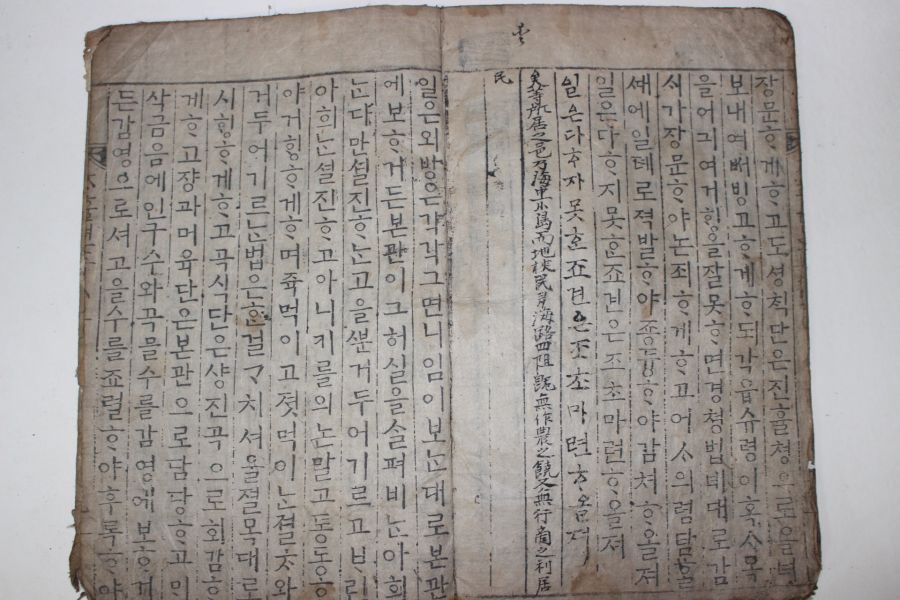 장문ᄒᆞ게ᄒᆞ고도셩칙단은진휼쳥으로올녀
보내여뻐빙고ᄒᆞ게ᄒᆞ되각읍슈령이혹ᄉᆞ목
을어긔여거ᄒᆡᆼ을잘못ᄒᆞ면경쳥법녜대로감
ᄉᆡ가장문ᄒᆞ야논죄ᄒᆞ게ᄒᆞ고어ᄉᆞ의렴탐ᄒᆞᆯ
ᄯᅢ에일톄로젹발ᄒᆞ야죵듕ᄒᆞ야감쳐ᄒᆞ올져
일은다ᄒᆞ지못ᄒᆞᆫ죠건은조초마련ᄒᆞ올져
일은다ᄒᆞ자못ᄒᆞᆫ죠건은조초마련ᄒᆞ올져
矣等所居之邑乃海中小島而地狹民貧海路四阻旣無作農之饒又無行商之利居
民
일은외방은각각그면니임이보ᄂᆞᆫ대로본관
에보ᄒᆞ거든본관이그허실을ᄉᆞᆯ펴비ᄂᆞᆫ아희
ᄂᆞᆫ댜만셜진ᄒᆞᄂᆞᆫ고을ᄲᅮᆫ거두어기르고ᄇᆞ린
아희ᄂᆞᆫ셜진ᄒᆞ고아니키를의논말고동동ᄒᆞ
야거ᄒᆡᆼᄒᆞ게ᄒᆞ며쥭먹이고졋먹이ᄂᆞᆫ졀ᄎᆞ와
거두어기르ᄂᆞᆫ법은ᄒᆞᆫ결ᄀᆞ치셔울졀목대로
시ᄒᆡᆼᄒᆞ게ᄒᆞ고곡식단은샹진곡으로회감ᄒᆞ
게ᄒᆞ고쟝과머육단은본관으로담당ᄒᆞ고ᄆᆡ
삭금음에인구수와곡믈수를감영에보ᄒᆞ게
든감영으로셔고을수를죠렬ᄒᆞ야후록ᄒᆞ야